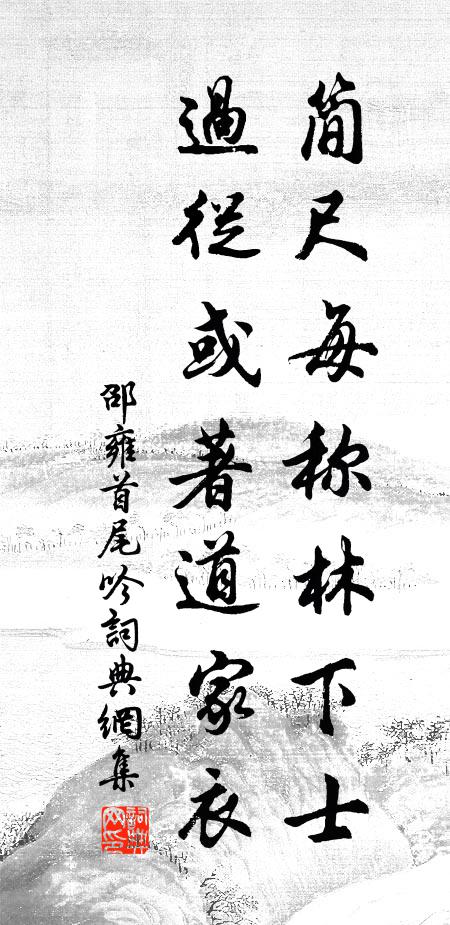 简尺每称林下士
過從或著道家衣
邵雍首尾吟詞典網集